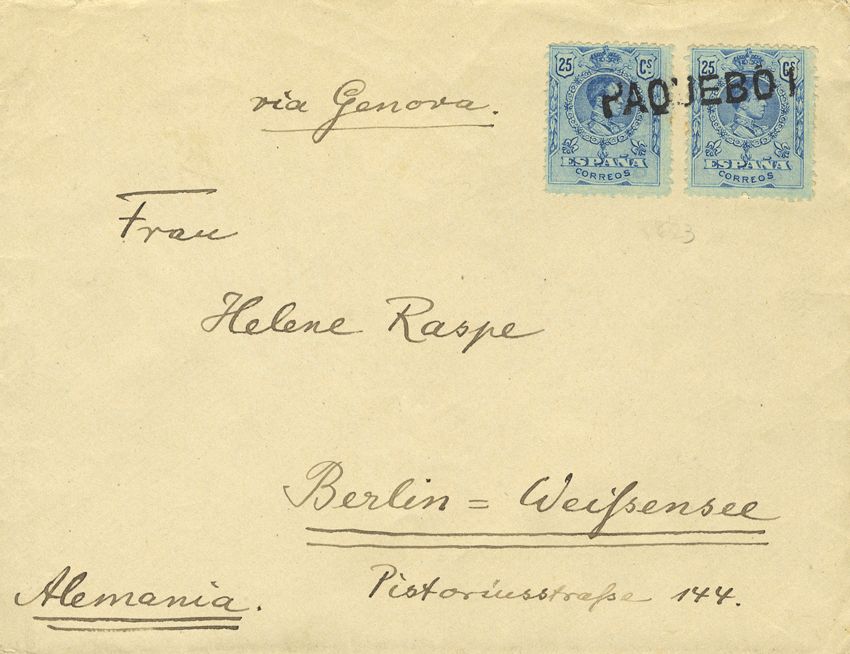 via Genova.
25 Cs
ESPAÑA
CORREOS
25 Cs
ESPAÑA
CORREOS
PAQUEBOT
Frau
Helene Raspe
Berlin = Weißensee
Pistoriusstraße 144.
Alemania.